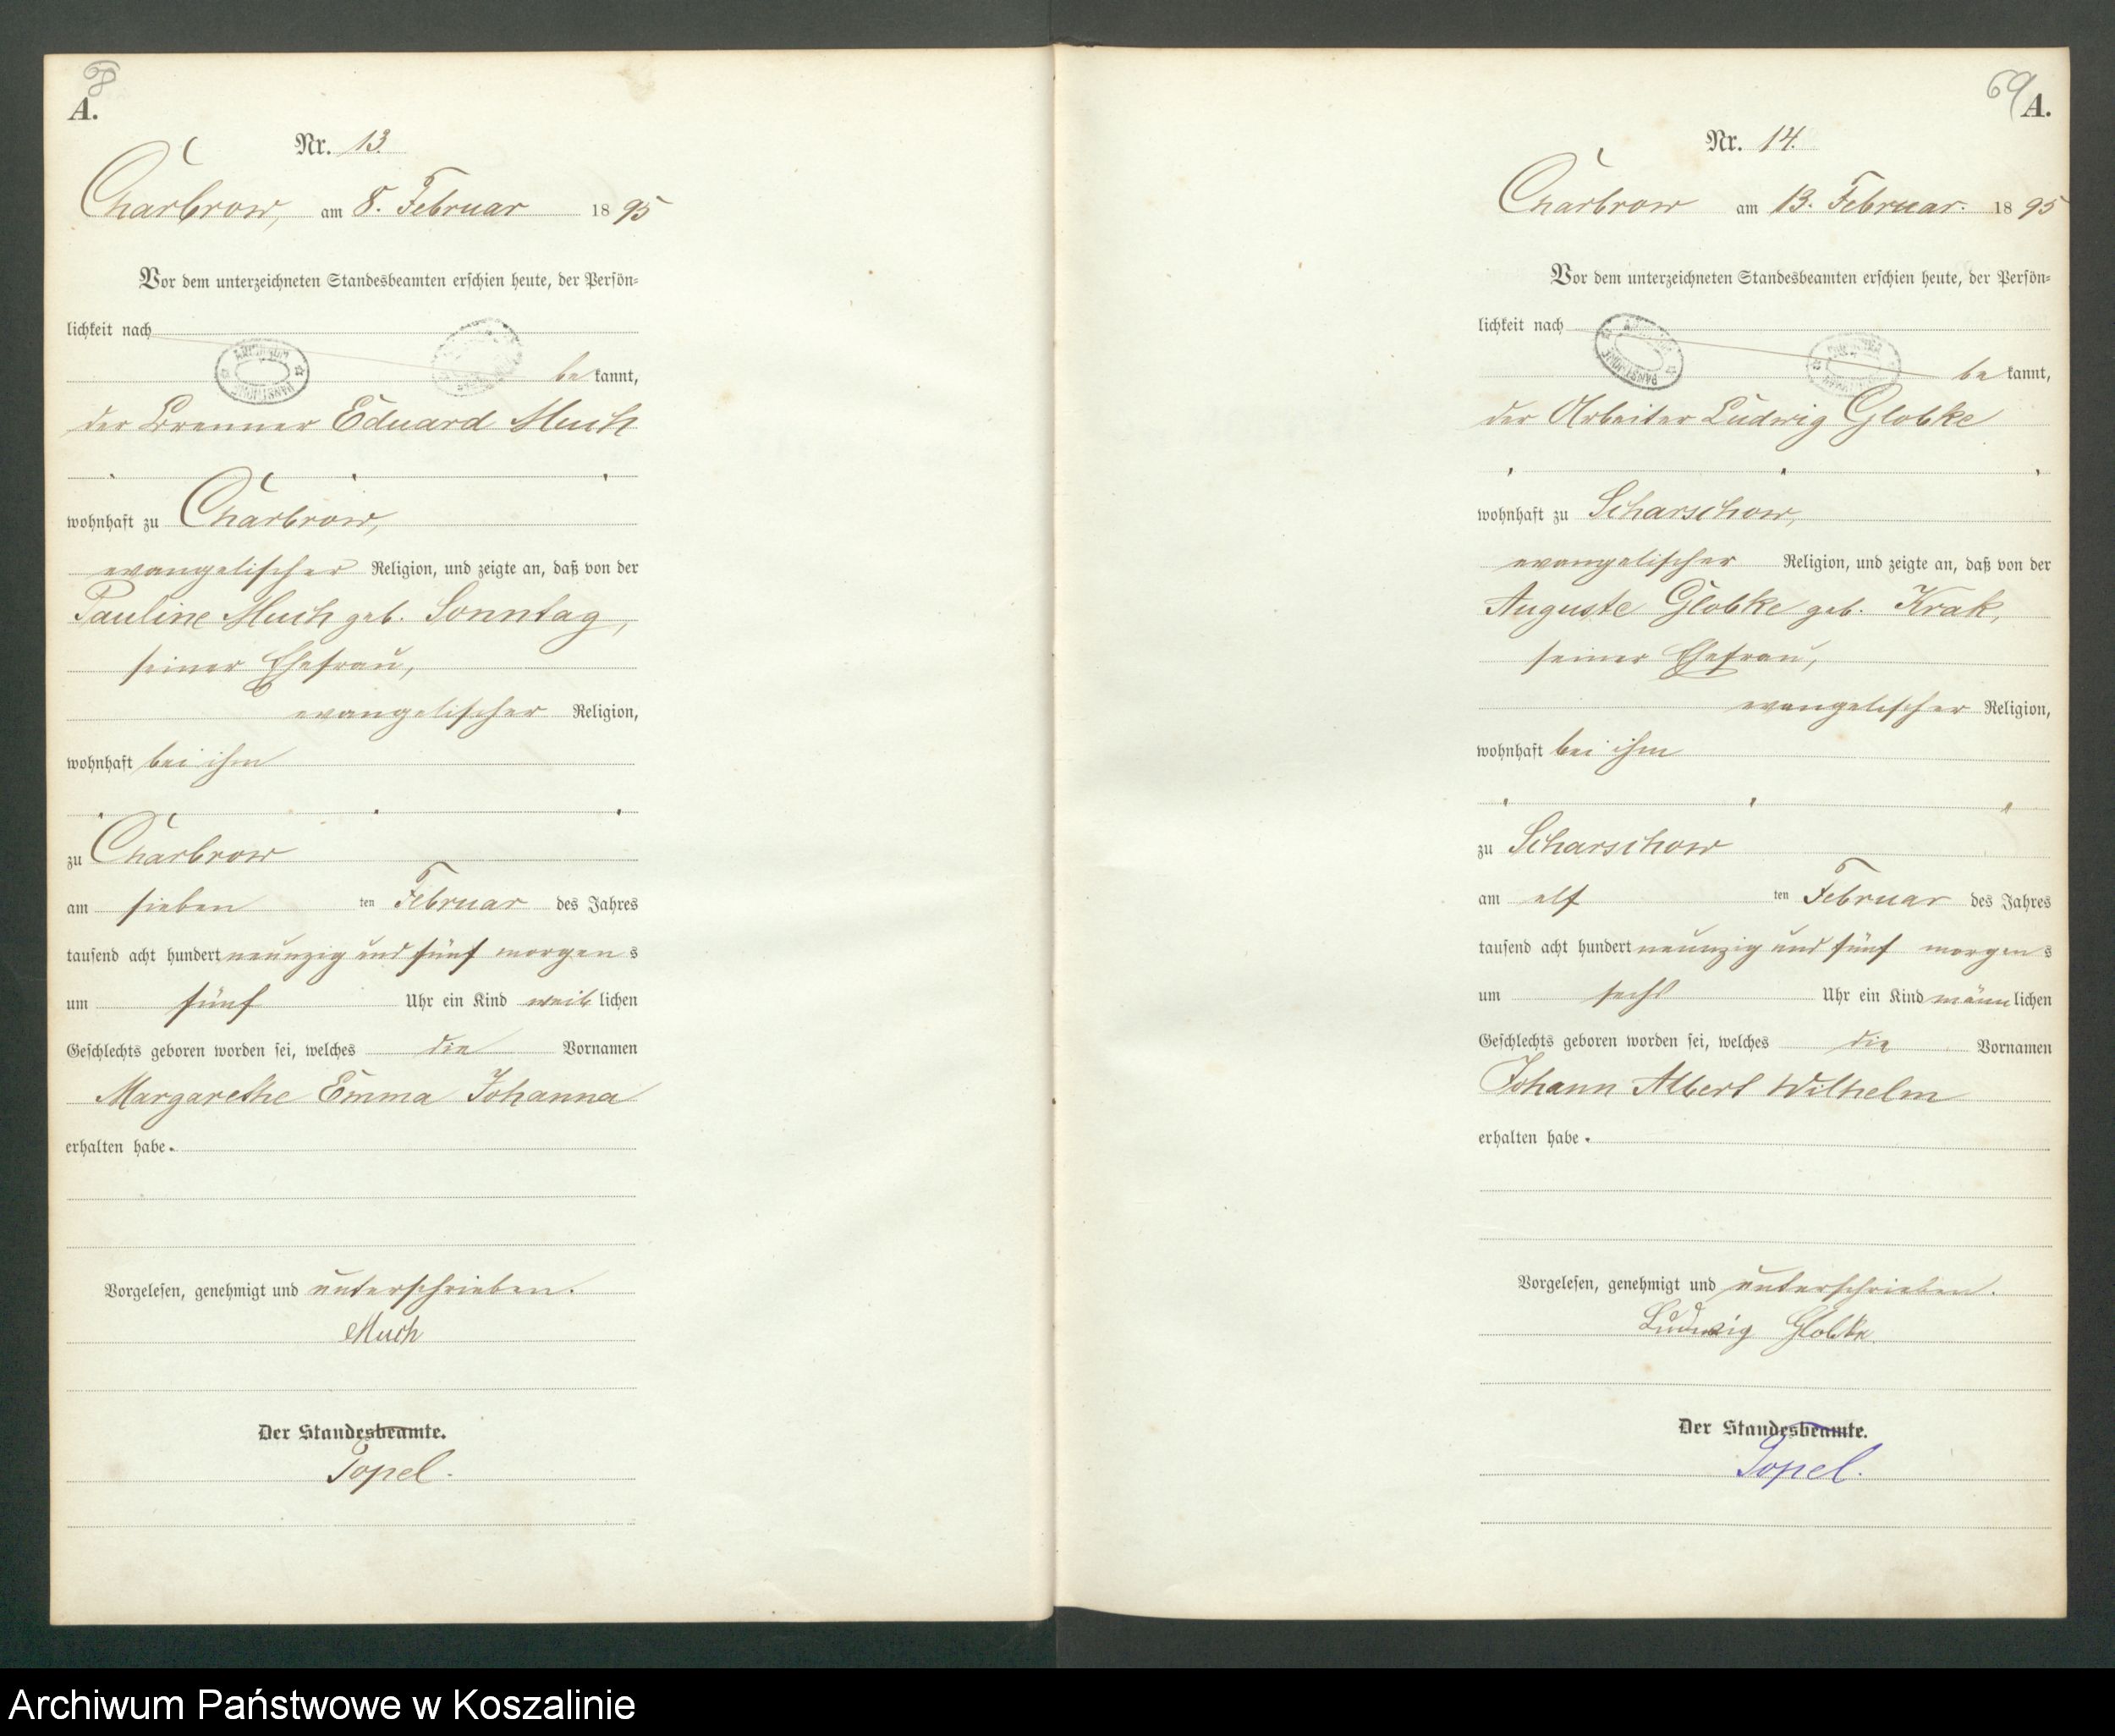 68
A.
Nr. 13.
Charbrow, am 8. Februar 1895
Vor dem unterzeichneten Standesbeamten erschien heute, der Persön-
lichkeit nach
be kannt,
der Brenner Eduard Much
wohnhaft zu Charbrow,
evangelischer Religion, und zeigte an, daß von der
Pauline Much geb. Sonntag,
seiner Ehefrau,
evangelischer Religion,
wohnhaft bei ihm
zu Charbrow
am sieben ten Februar des Jahres
tausend acht hundert neunzig und fünf morgen s
um fünf Uhr ein Kind weib lichen
Geschlechts geboren worden sei, welches die Vornamen
Margarethe Emma Johanna
erhalten habe.
Vorgelesen, genehmigt und unterschrieben.
Much
Der Standesbeamte.
Topel.
69
A.
Nr. 14.
Charbrow am 13. Februar. 1895
Vor dem unterzeichneten Standesbeamten erschien heute, der Persön-
lichkeit nach
be kannt,
der Arbeiter Ludwig Globke
wohnhaft zu Scharschow,
evangelischer Religion, und zeigte an, daß von der
Auguste Globke geb. Krak,
seiner Ehefrau,
evangelischer Religion,
wohnhaft bei ihm
zu Scharschow
am elf ten Februar des Jahres
tausend acht hundert neunzig und fünf morgen s
um sechs Uhr ein Kind männ lichen
Geschlechts geboren worden sei, welches die Vornamen
Johann Albert Wilhelm
erhalten habe.
Vorgelesen, genehmigt und unterschrieben.
Ludwig Globke.
Der Standesbeamte.
Topel.
Archiwum Państwowe w Koszalinie